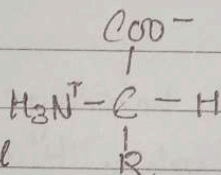 COO⁻
H₃N⁺-C-H
l
R